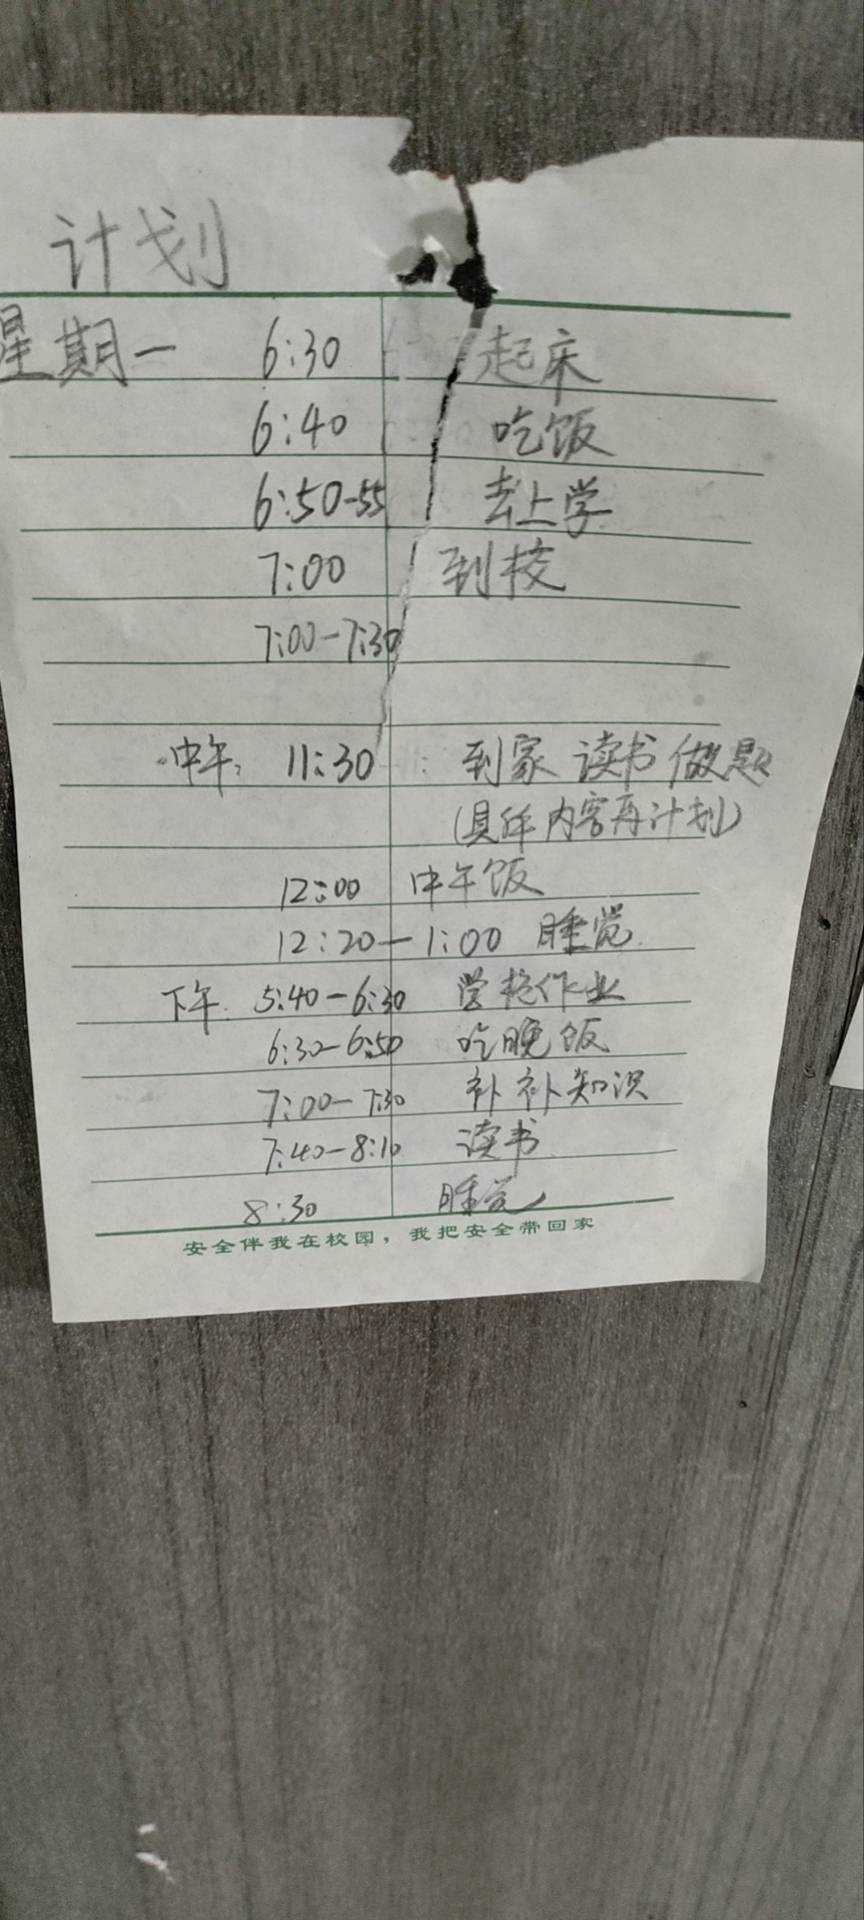 计划
星期一 6:30 起床
6:40 吃饭
6:50-55 去上学
7:00 到校
7:00-7:30
中午: 11:30 到家 读书 做题
(具体内容再计划)
12:00 中午饭
12:20-1:00 睡觉
下午: 5:40-6:30 学校作业
6:30-6:50 吃晚饭
7:00-7:30 补补知识
7:40-8:10 读书
8:30 睡觉
安全伴我在校园，我把安全带回家